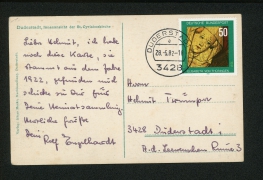 Duderstadt, Innenansicht der St. Cyriakuskirche
Lieber Helmut, ich habe
noch diese Karte, sie
stammt aus dem Jahre
1922, gefunden und
schicke sie Dir für
Deine Heimatsammlung.
Herzliche Grüße
Dein Rolf Engelhardt
DUDERSTADT
28.-6.82-
3428
DEUTSCHE BUNDESPOST
50
Herrn
Helmut
3428 Duderstadt
A.d.